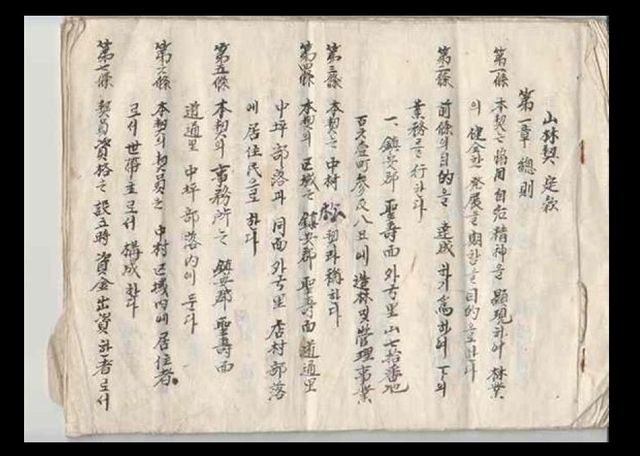 山林契 定款
第一章 總則
第一條 本契는 協同自治精神을 顯現하야 林業
의 健全한 發展을 期함을 目的으로 한다
第二條 前條의 目的을 達成하기 爲하여 下의
業務를 行한다
一、鎭安郡 聖壽面 外弓里 山七拾番地
百 壹町參反八 에 造林 및 管理事業
第三條 本契는 中村 松契라 稱한다
第四條 本契의 區域는 鎭安郡 聖壽面 道通里
中坪部落과 同面 外弓里 店村部落
에 居住民으로 한다
第五條 本契의 事務所는 鎭安郡 聖壽面
道通里 中坪部落內에 둔다
第六條 本契의 契員는 中村區域內에 居住者
로서 世帶主로서 構成한다
第七條 契員資格는 設立時 資金出資한 者로서